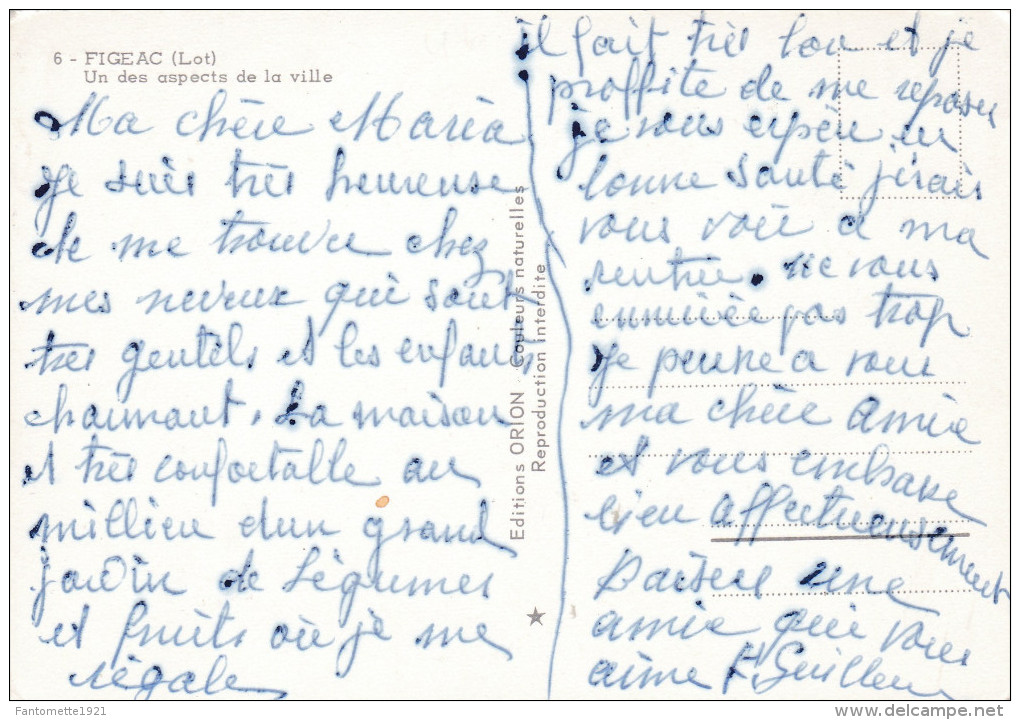 6 - FIGEAC (Lot)
Un des aspects de la ville
Ma chère Maria
Je suis très heureuse
de me trouver chez
mes neveux qui sont
très gentils et les enfants
charmant. La maison
et très confortable au
millieu dun grand
jardin de légumes
et fruits où je me
régale
Editions ORION - Couleurs naturelles
Reproduction interdite
il fait très bon et je
proffite de me reposer
je vous espère en
bonne santé j'irais
vous voir a ma
rentrée. ne vous
ennuiée pas trop
Je pense a vous
ma chère Amie
et vous embrasse
bien affectueusement
Baisers une
amie qui vous
aime
Fantomette1921
delcampe.net